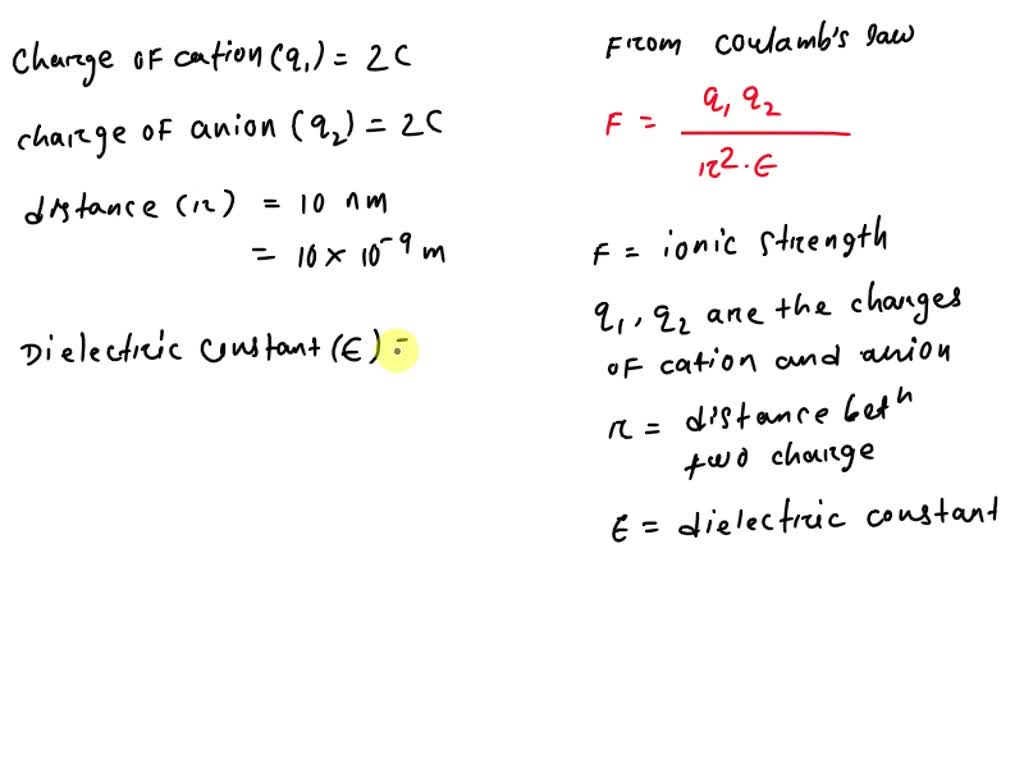 Charge OF cation (q₁) = 2C
charge OF anion (q₂) = 2C
distance (r) = 10 nm
= 10 × 10⁻⁹ m
Dielectric constant (ϵ) =
From coulamb's law
F = q₁ q₂ / r² · ϵ
F = ionic strength
q₁, q₂ are the charges
of cation and anion
r = distance betⁿ
two charge
ϵ = dielectric constant